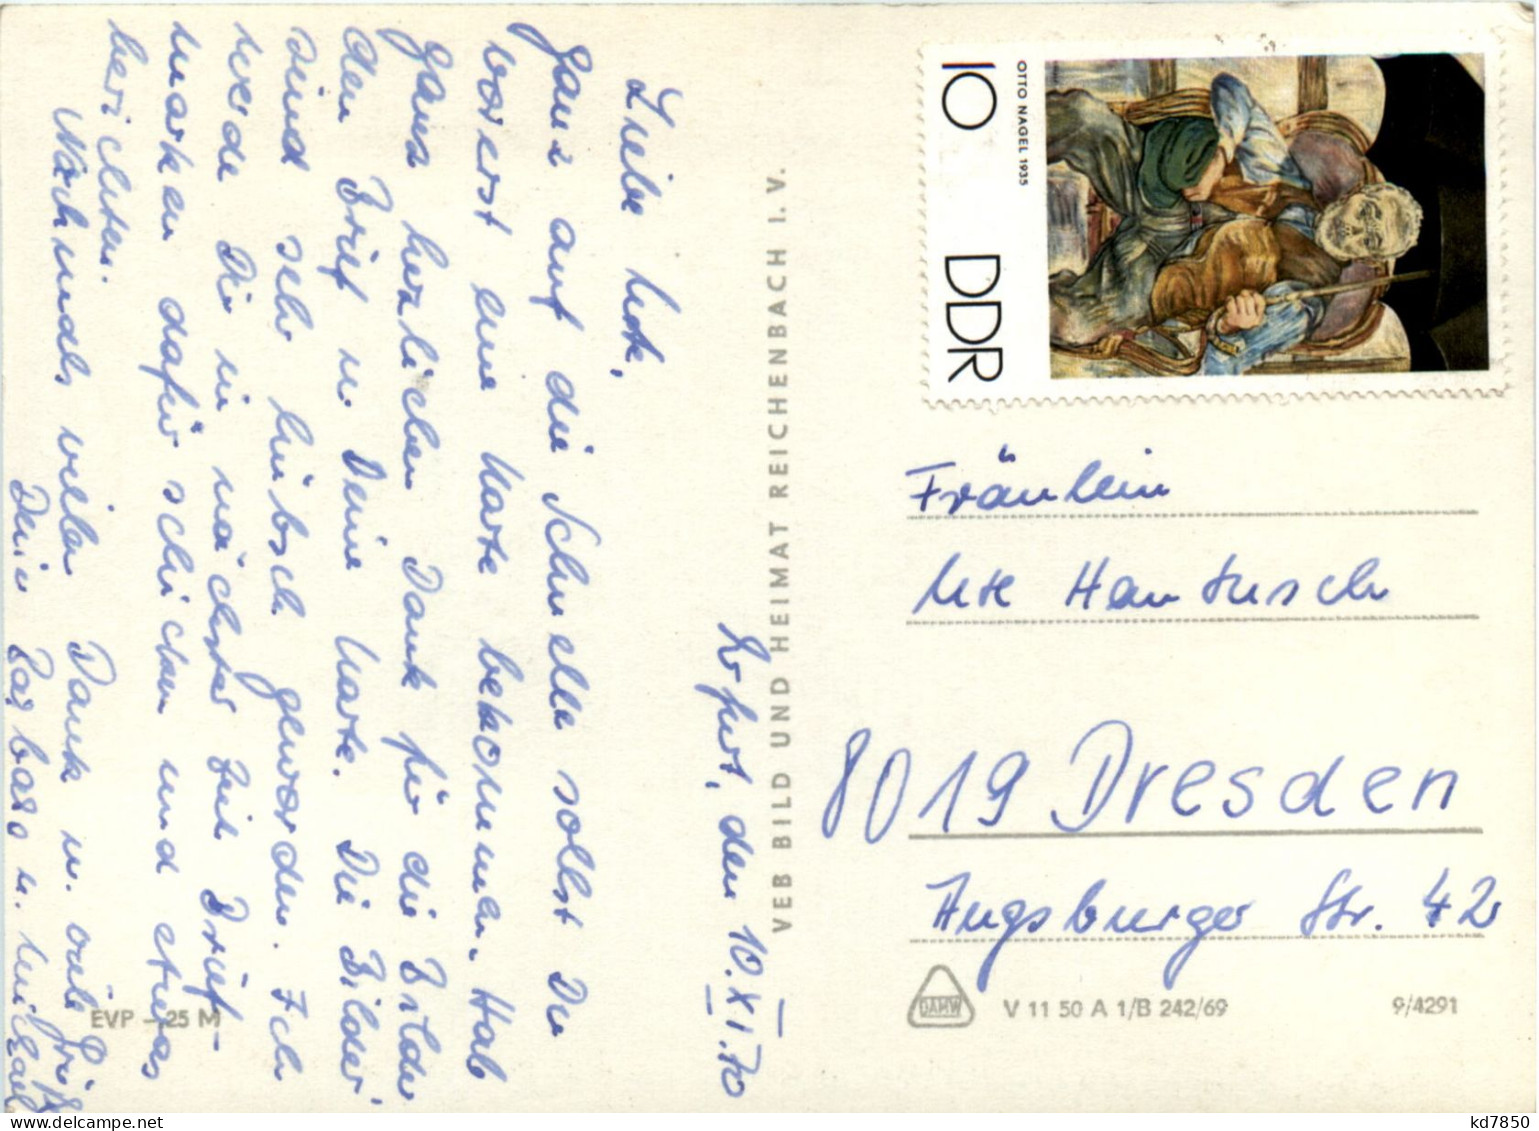 Erfurt, den 10.XI.70
Liebe Ute,
Ganz auf die Schnelle sollst Du
vorerst eine Karte bekommen. Hab
ganz herzlichen Dank für die Bilder
den Brief u. Deine Karte. Die Bilder
sind sehr hübsch geworden. Ich
werde Dir in nächster Zeit Brief-
marken dafür schicken und etwas
berichten.
Nochmals vielen Dank u. viele Grüße
Dein
VEB BILD UND HEIMAT REICHENBACH I. V.
EVP - 25 M
OTTO NAGEL 1935
10 DDR
Fräulein
Ute Hantusch
8019 Dresden
Augsburger Str. 42
DAMW
V 11 50 A 1/B 242/69
9/4291
kd7850